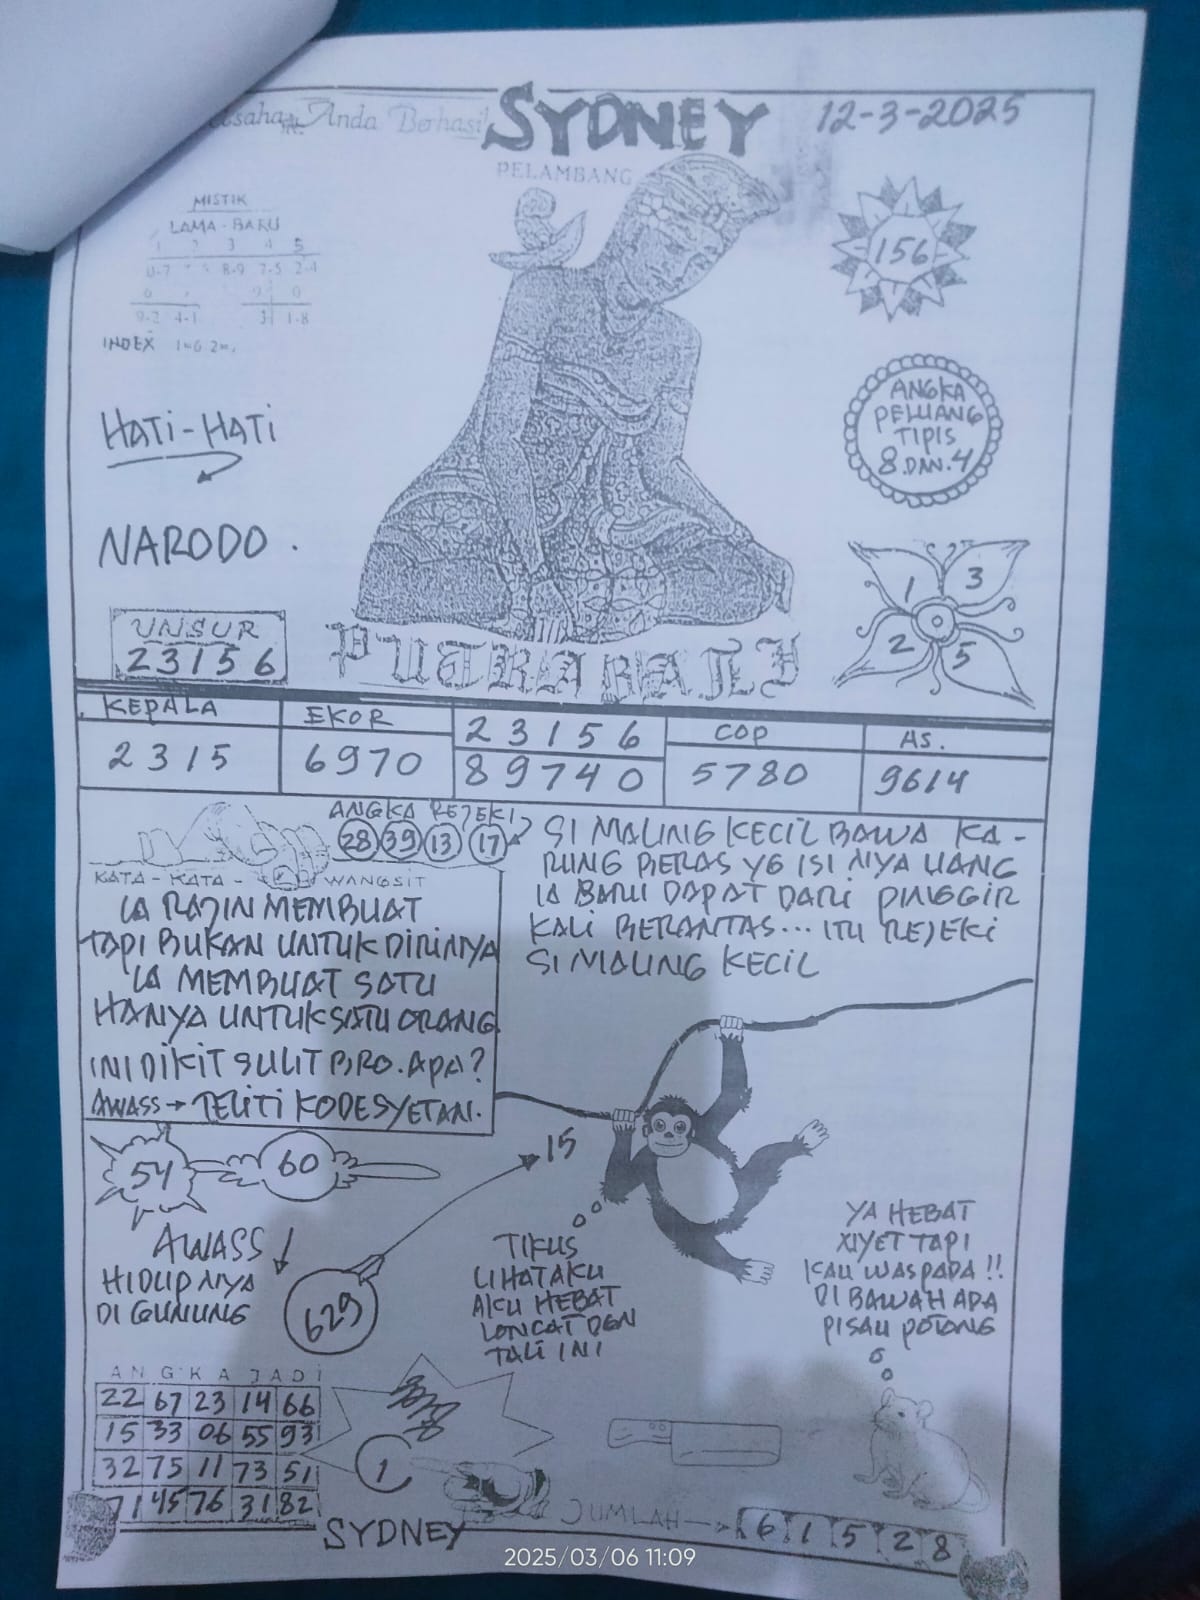 Anda Berhasil
SYDNEY
12-3-2025
PELAMBANG
MISTIK
LAMA - BARU
1 2 3 4 5
0-7 8-9 7-5 2-4
6 9 0
9-2 4-1 3 1-8
INDEX 1=6 2=
156
HATI-HATI
ANGKA
PELUANG
TIPIS
8 DAN.4
NARODO.
1 3
2 5
UNSUR
23156
PUTRA BALI
KEPALA EKOR 23156 COP AS.
2315 6970 89740 5780 9614
ANGKA REJEKI
28 39 13 17
KATA-KATA - WANGSIT
IA RAJIN MEMBUAT
TAPI BUKAN UNTUK DIRINYA
IA MEMBUAT SATU
HANYA UNTUK SATU ORANG
INI DIKIT SULIT BRO. APA?
AWASS → TELITI KODE SYETAN.
SI MALING KECIL BAWA KA-
RUNG BERAS YG ISI NYA UANG
IA BARU DAPAT DARI PINGGIR
KALI BERANTAS... ITU REJEKI
SI MALING KECIL
54 60
15
AWASS
HIDUP NYA
DI GUNUNG
629
TIKUS
LIHAT AKU
AKU HEBAT
LONCAT DGN
TALI INI
YA HEBAT
XIYET TAPI
KAU WASPADA !!
DI BAWAH ADA
PISAU POTONG
ANGKA JADI
22 67 23 14 66
15 33 06 55 93
32 75 11 73 51
71 45 76 31 82
1
JUMLAH → 6 1 5 2 8
SYDNEY
2025/03/06 11:09